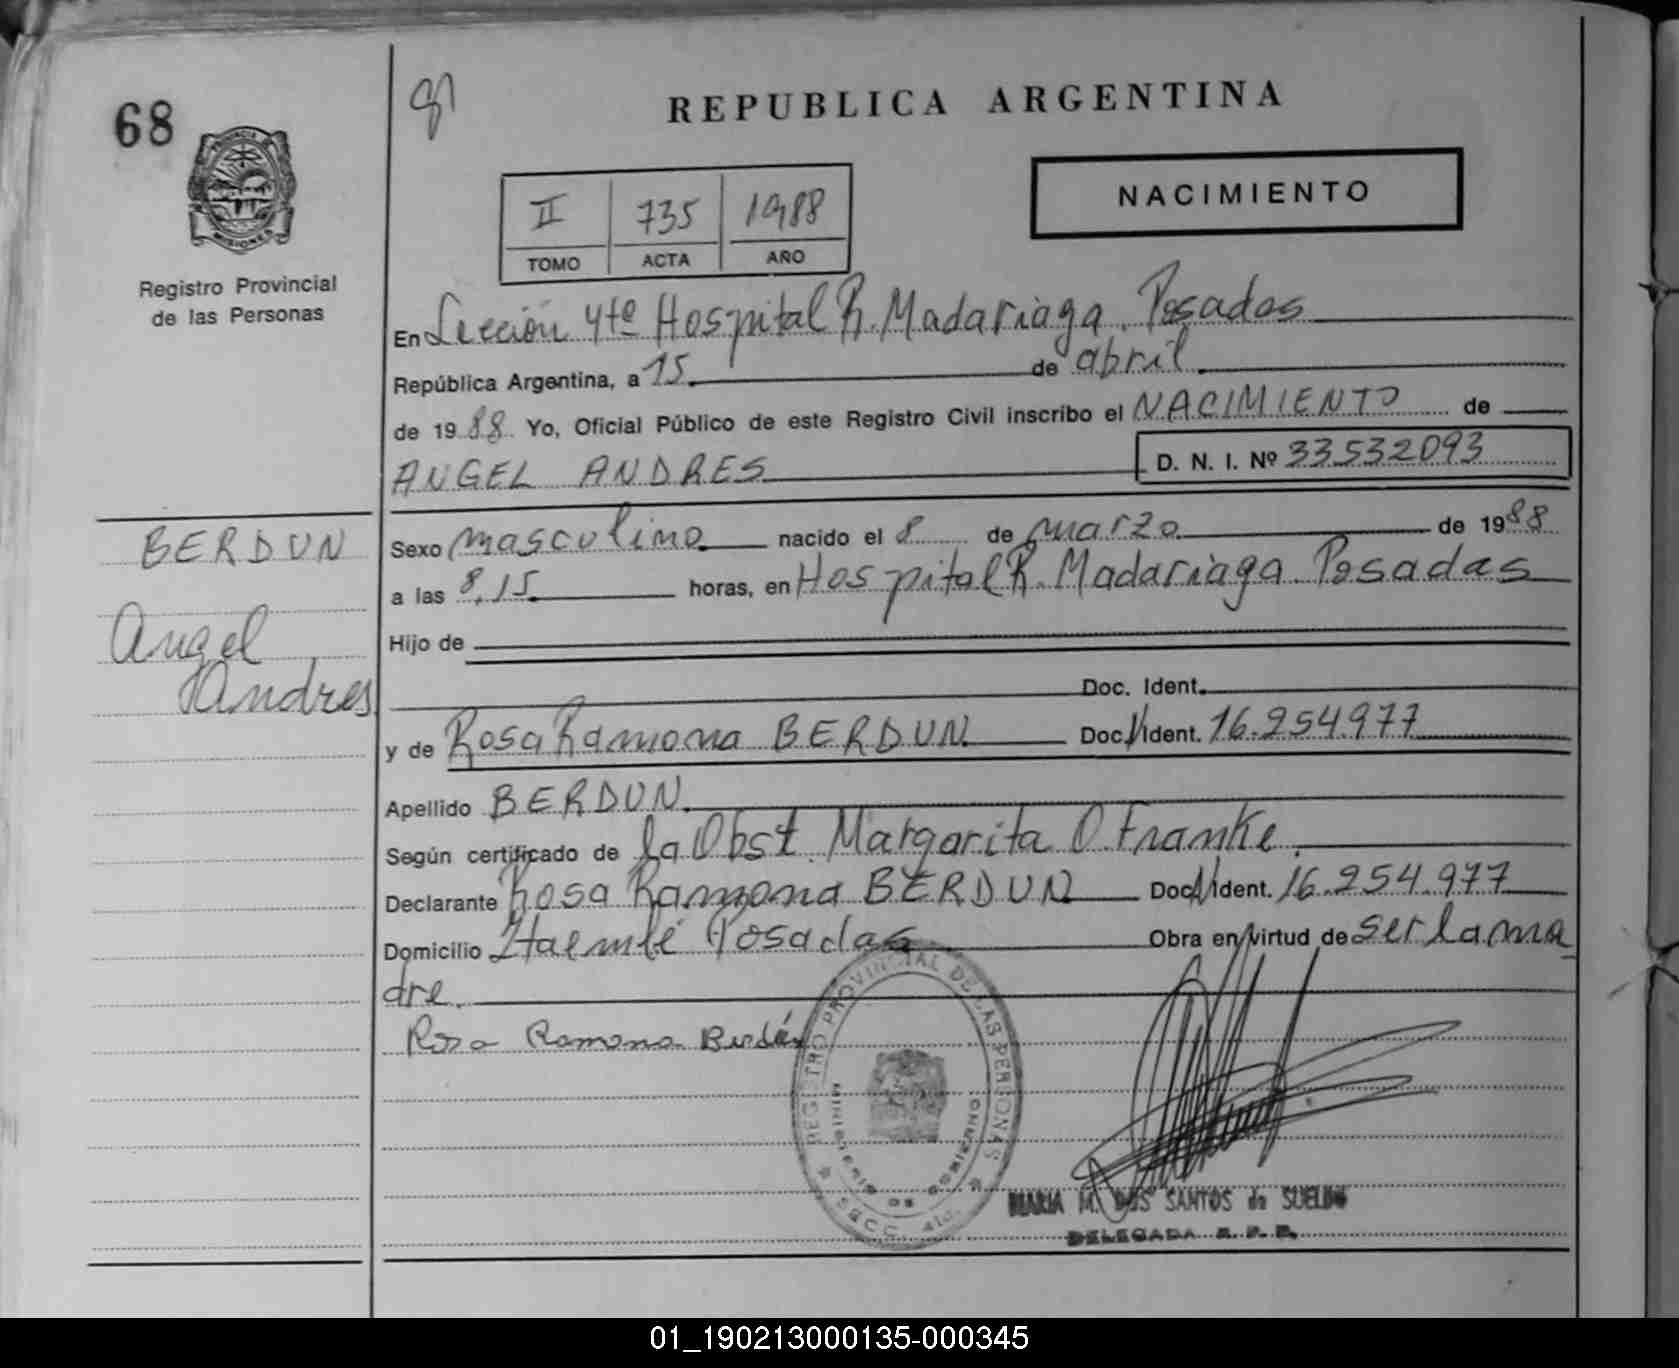 68
REPUBLICA ARGENTINA
PROVINCIA DE
MISIONES
Registro Provincial
de las Personas
NACIMIENTO
II 735 1988
TOMO ACTA AÑO
En Sección 4ta Hospital R. Madariaga. Posadas
República Argentina, a 15 de abril
de 1988 Yo, Oficial Público de este Registro Civil inscribo el NACIMIENTO de
ANGEL ANDRES D. N. I. Nº 33532093
BERDUN
Angel
Andres
Sexo masculino nacido el 8 de marzo de 1988
a las 8,15 horas, en Hospital R. Madariaga. Posadas
Hijo de
Doc. Ident.
y de Rosa Ramona BERDUN Doc. Ident. 16.254.977
Apellido BERDUN
Según certificado de la Obst. Margarita O. Franke.
Declarante Rosa Ramona BERDUN Doc. Ident. 16.254.977
Domicilio Itaembé Posadas Obra en virtud de ser la ma
dre.
Rosa Ramona Berdún
REGISTRO PROVINCIAL DE LAS PERSONAS
MINISTERIO DE GOBIERNO
SECC. 4ta.
MARIA M. DOS SANTOS de SUELDO
DELEGADA R. P. P.
01_190213000135-000345